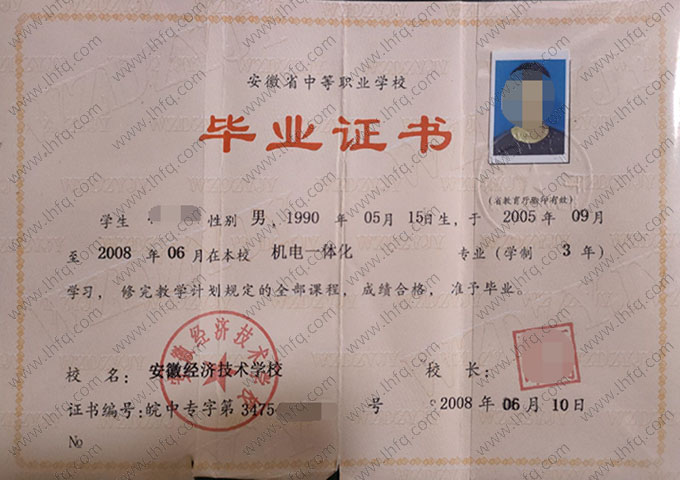 安徽省中等职业学校
毕业证书
(省教育厅验印有效)
学生 性别 男，1990 年 05 月 15日生，于 2005 年 09月
至 2008 年 06 月在本校 机电一体化 专业 (学制 3 年)
学习，修完教学计划规定的全部课程，成绩合格，准予毕业。
安徽经济技术学校
校 名：安徽经济技术学校 校 长：
证书编号：皖中专字第 3475 号 2008 年 06 月 10 日
No
www.lhfq.com